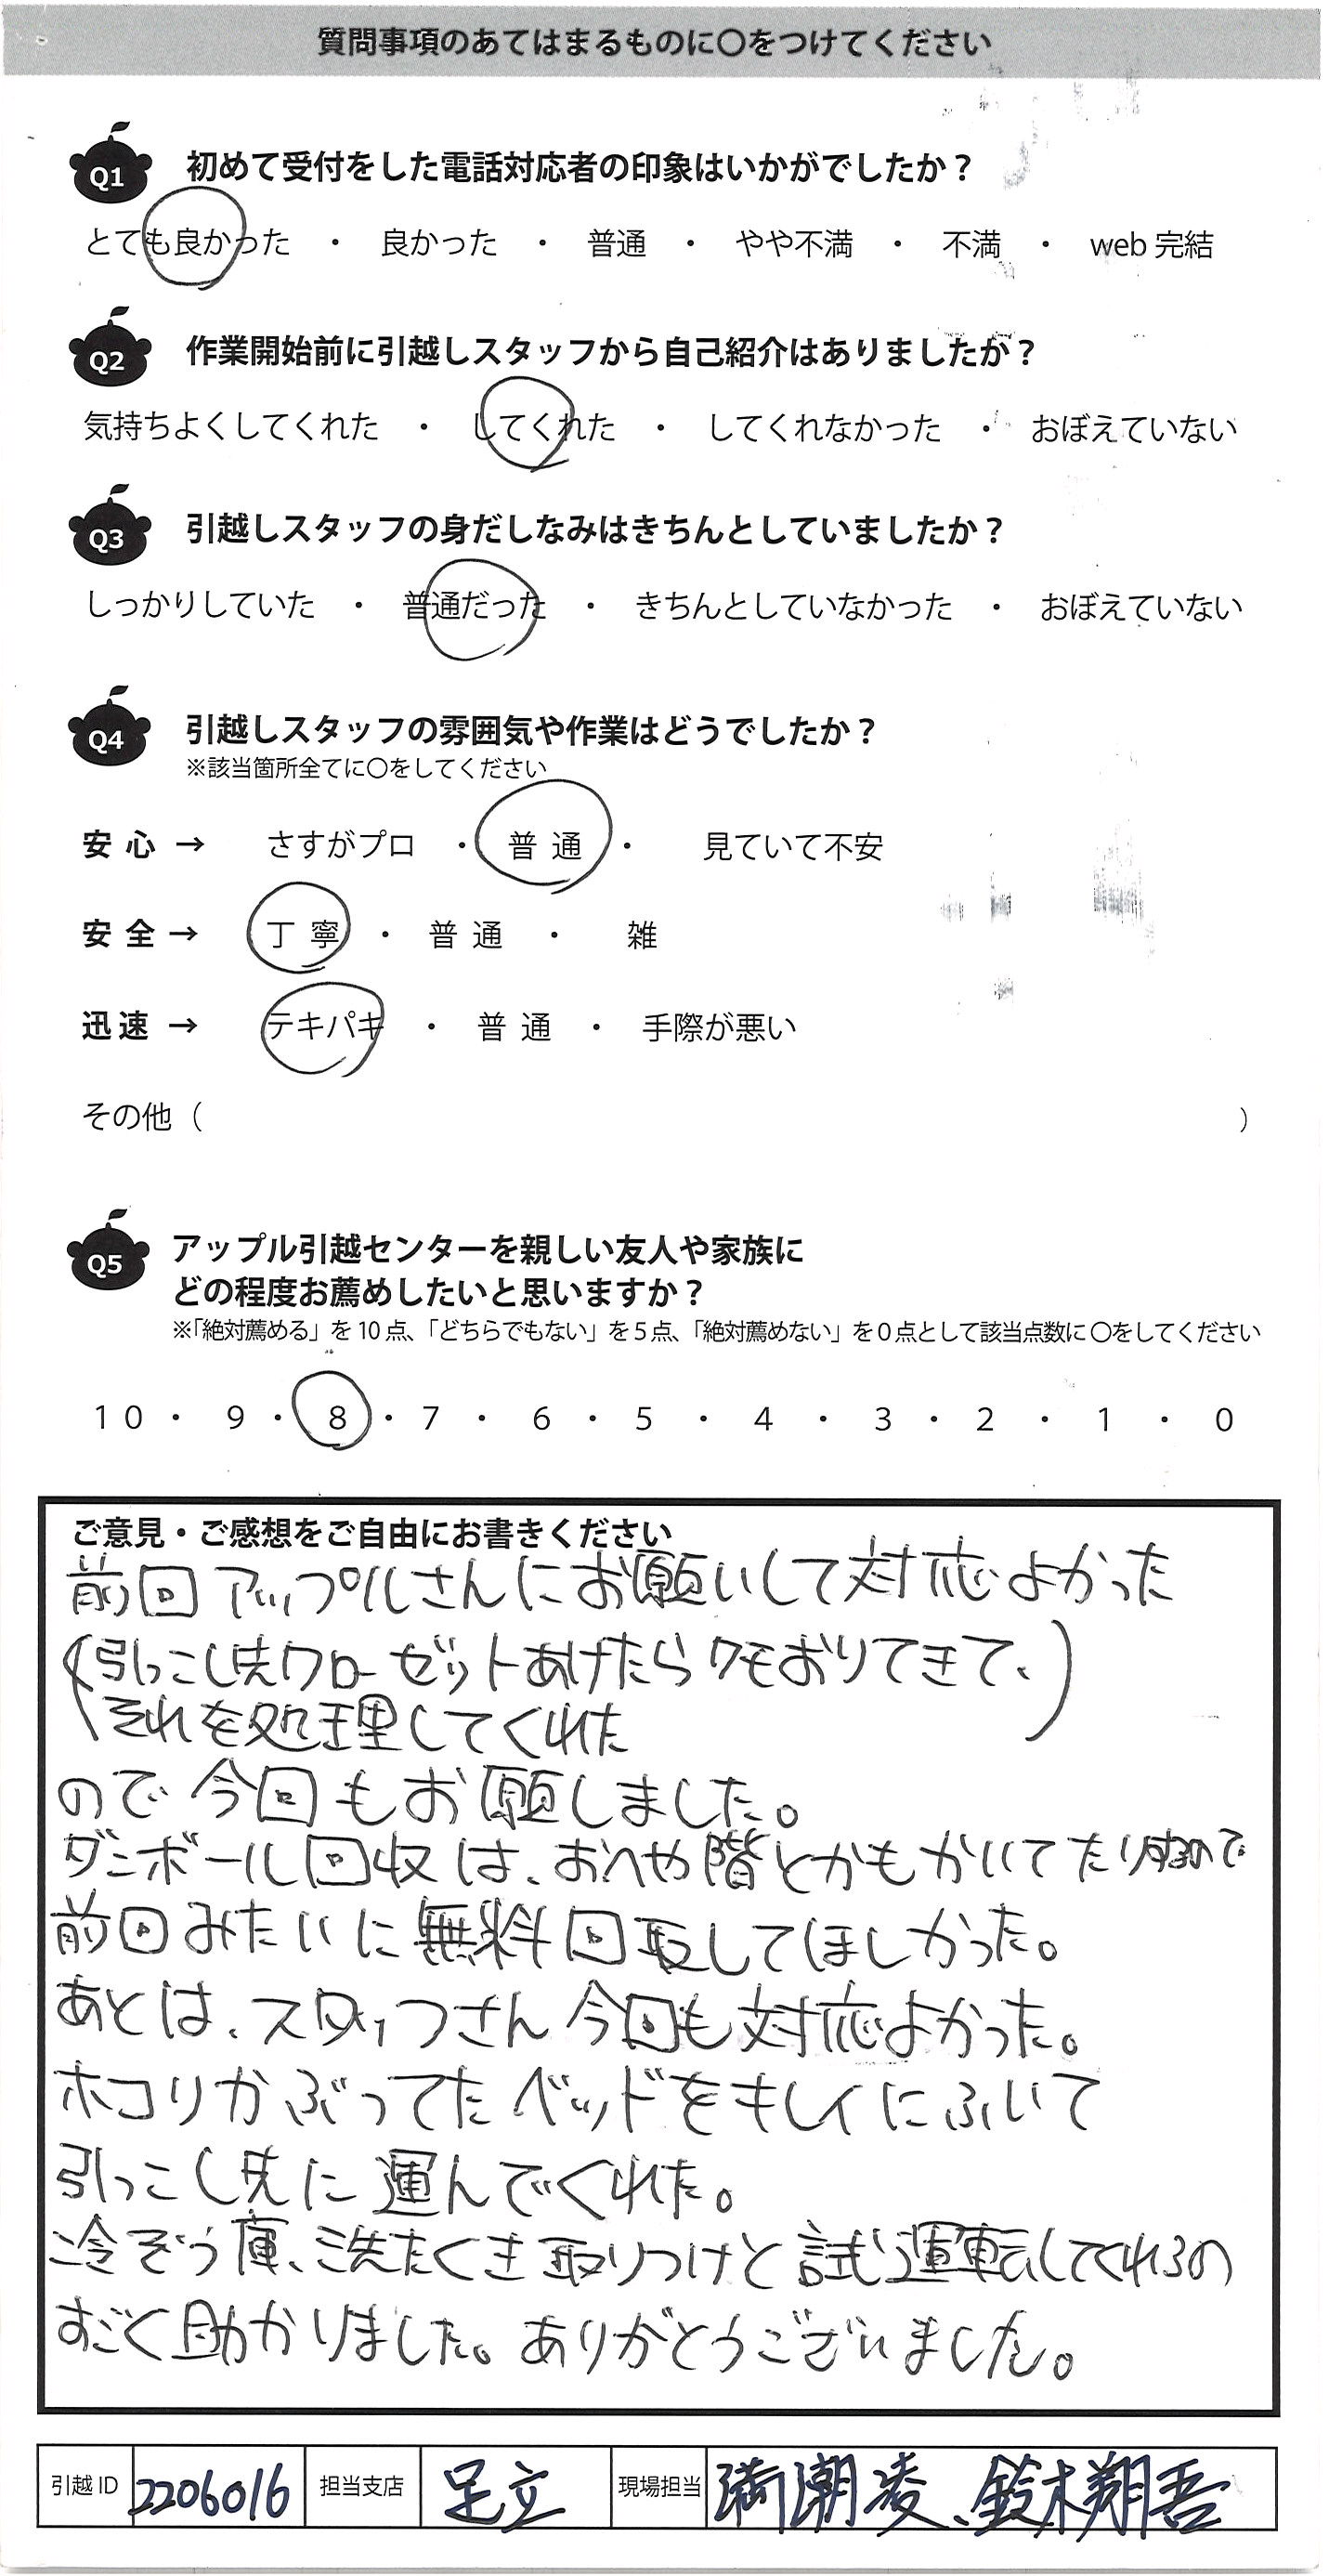 質問事項のあてはまるものに〇をつけてください
Q1 初めて受付をした電話対応者の印象はいかがでしたか？
とても良かった ・ 良かった ・ 普通 ・ やや不満 ・ 不満 ・ web 完結
Q2 作業開始前に引越しスタッフから自己紹介はありましたか？
気持ちよくしてくれた ・ してくれた ・ してくれなかった ・ おぼえていない
Q3 引越しスタッフの身だしなみはきちんとしていましたか？
しっかりしていた ・ 普通だった ・ きちんとしていなかった ・ おぼえていない
Q4 引越しスタッフの雰囲気や作業はどうでしたか？
※該当箇所全てに〇をしてください
安心 → さすがプロ ・ 普通 ・ 見ていて不安
安全 → 丁寧 ・ 普通 ・ 雑
迅速 → テキパキ ・ 普通 ・ 手際が悪い
その他（ ）
Q5 アップル引越センターを親しい友人や家族に
どの程度お薦めしたいと思いますか？
※「絶対薦める」を10点、「どちらでもない」を5点、「絶対薦めない」を0点として該当点数に〇をしてください
10 ・ 9 ・ 8 ・ 7 ・ 6 ・ 5 ・ 4 ・ 3 ・ 2 ・ 1 ・ 0
ご意見・ご感想をご自由にお書きください
前回アップルさんにお願いして対応よかった
(引っこし先クローゼットあけたらクモおりてきて、
それを処理してくれた)
ので今回もお願しました。
ダンボール回収は、おへや階とかもかいてたりするので
前回みたいに無料回取してほしかった。
あとは、スタッフさん今回も対応よかった。
ホコリかぶってたベッドをキレイにふいて
引っこし先に運んでくれた。
冷ぞう庫、洗たくき取りつけと試運転してくれるの
すごく助かりました。ありがとうございました。
引越ID 2206016 担当支店 足立 現場担当 潮凌、鈴木翔吾